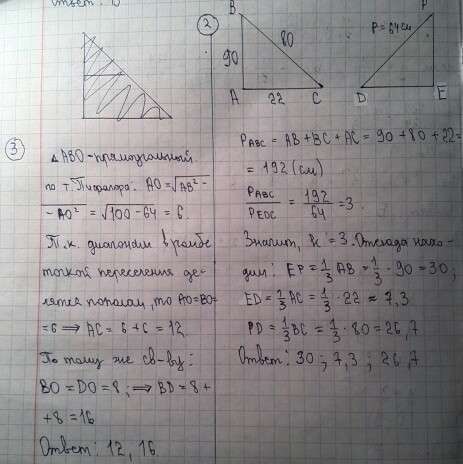 Ответ: 
2
B
90
80
A
22
C
P = 64 см
P
D
E
P ABC = AB + BC + AC = 90 + 80 + 22 =
= 192 (см)
P ABC / P EDC = 192 / 64 = 3
Значит, k = 3. Отсюда нахо-
дим: EP = 1/3 AB = 1/3 · 90 = 30;
ED = 1/3 AC = 1/3 · 22 ≈ 7,3
PD = 1/3 BC = 1/3 · 80 = 26,7
Ответ: 30; 7,3; 26,7
3
△ ABO - прямоугольный.
по т. Пифагора: AO = √AB² -
- AO² = √100 - 64 = 6.
Т.к. диагонали в ромбе
точкой пересечения де-
лятся пополам, то AO = BO =
= 6 ⟹ AC = 6 + 6 = 12
По тому же св-ву:
BO = DO = 8; ⟹ BD = 8 +
+ 8 = 16
Ответ: 12, 16